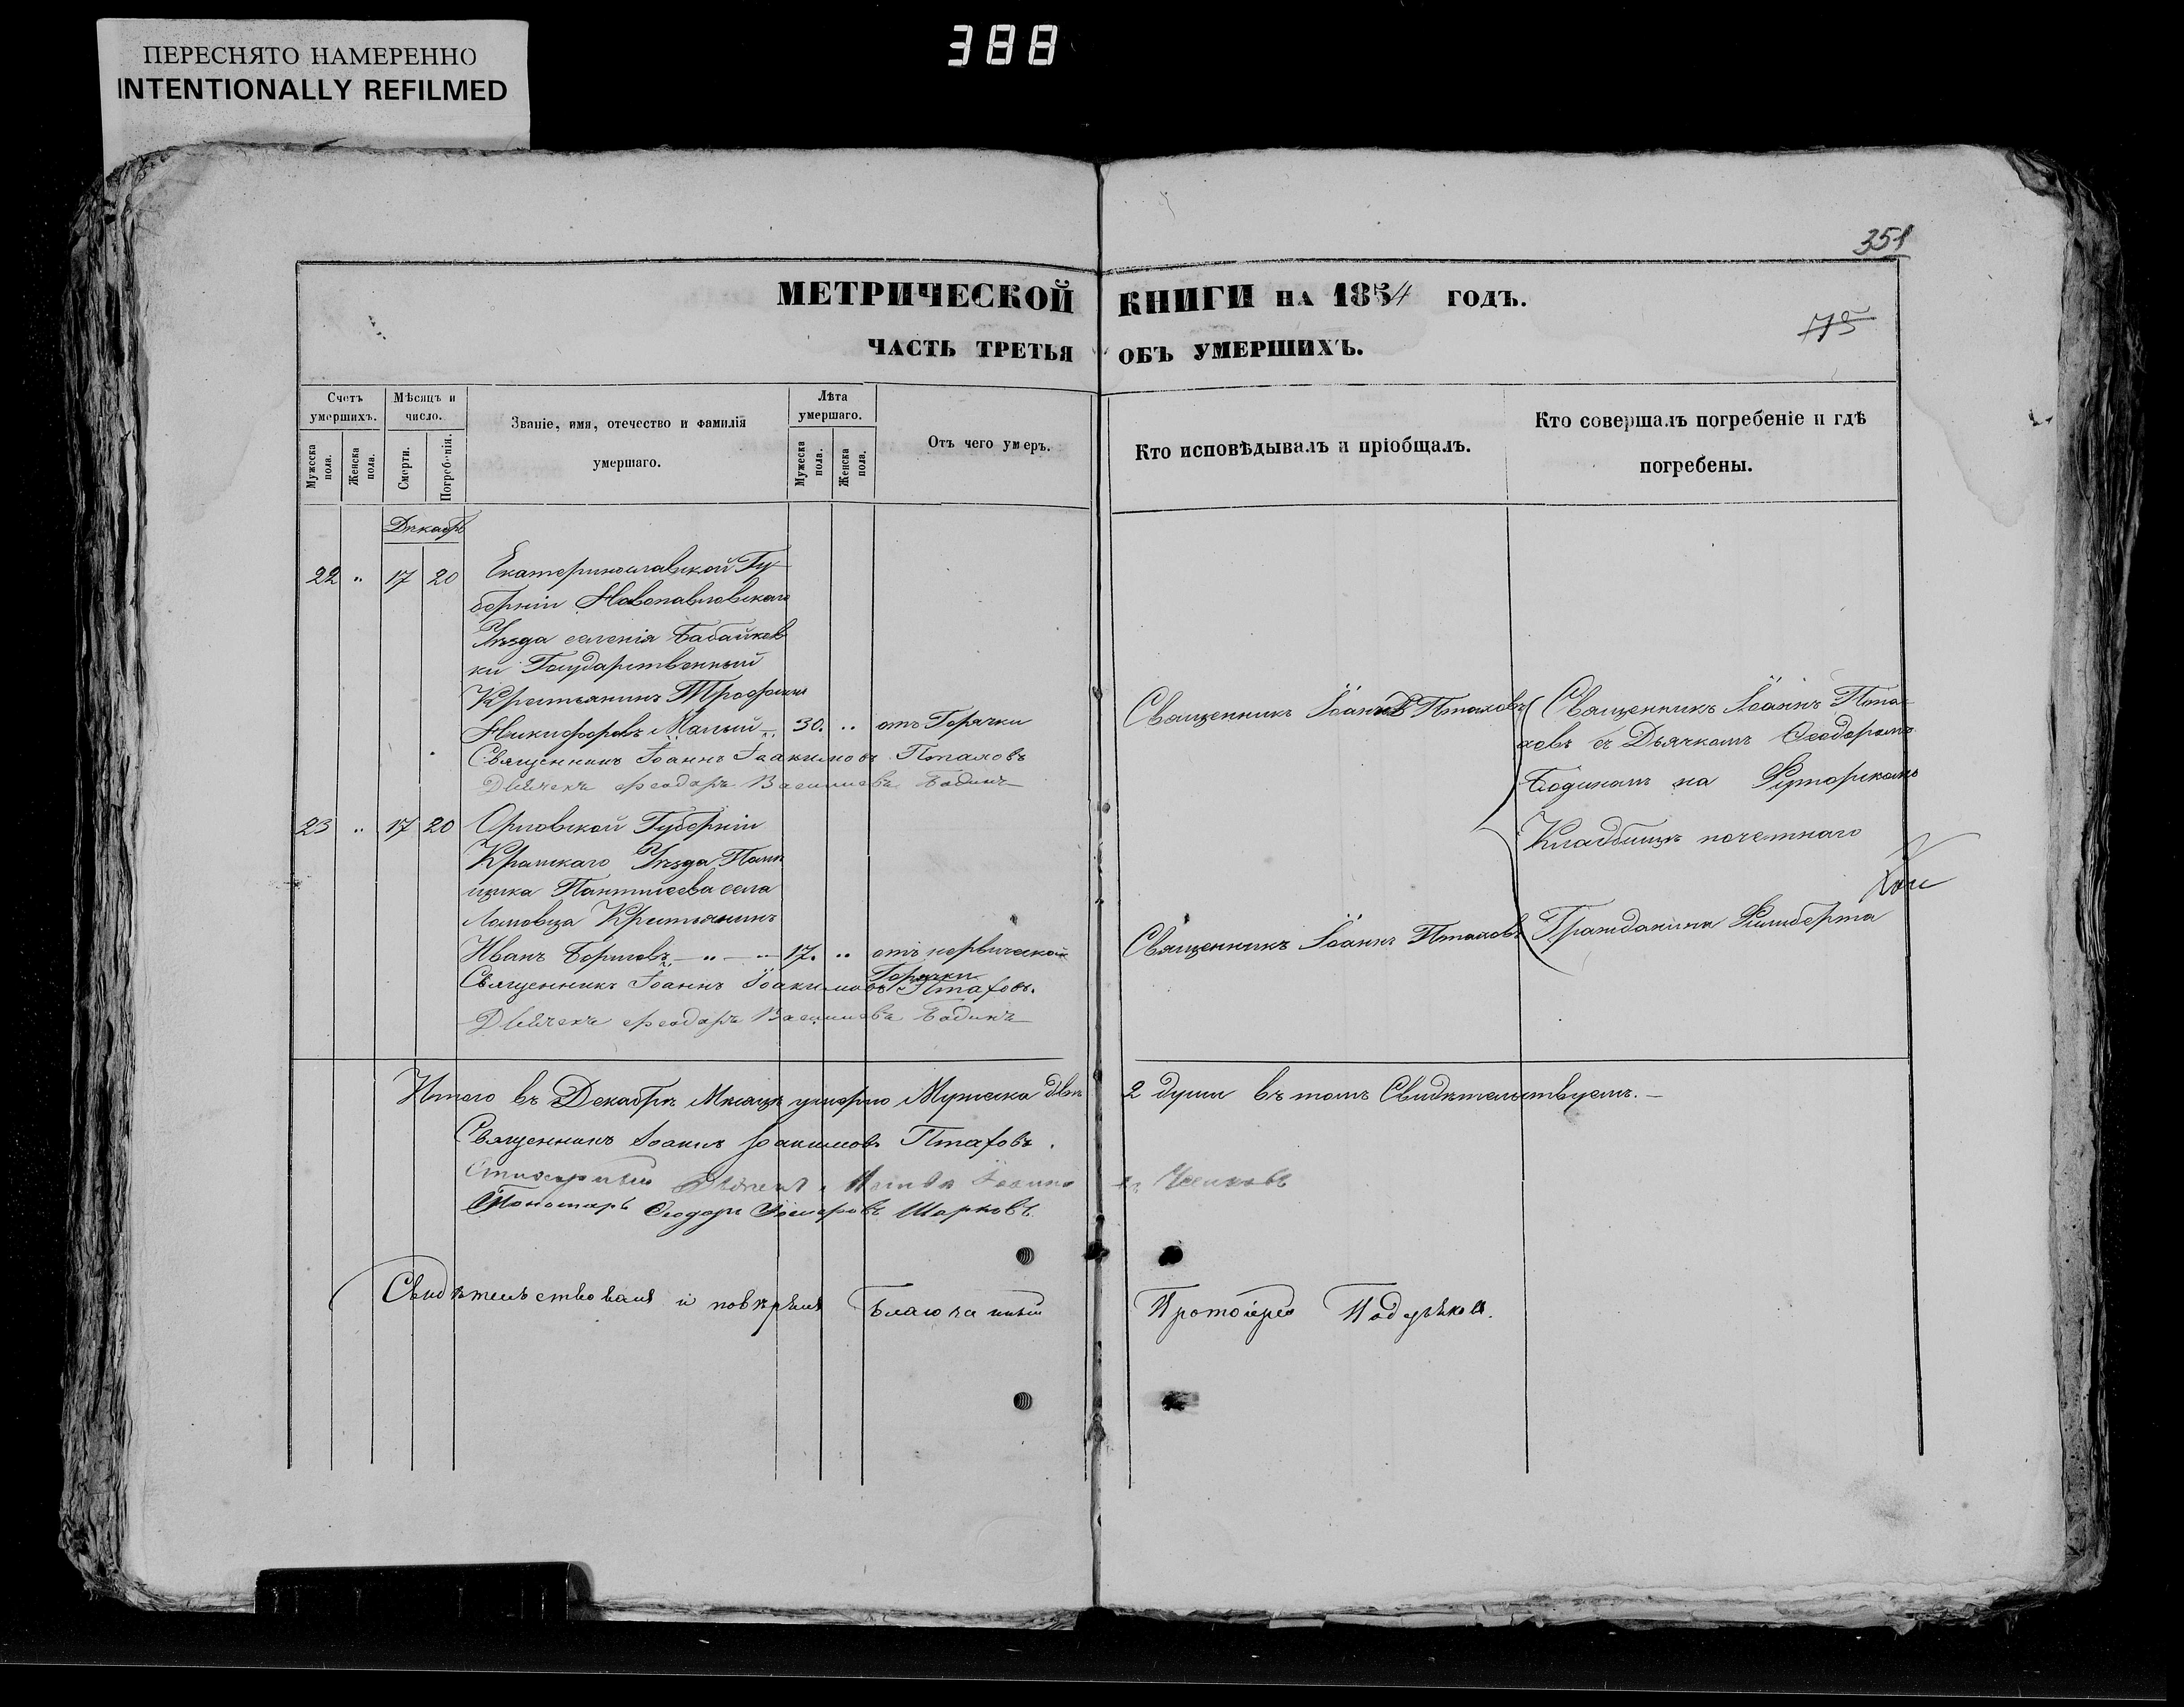 388
ПЕРЕСНЯТО НАМЕРЕННО
INTENTIONALLY REFILMED
351
МЕТРИЧЕСКОЙ КНИГИ НА 1854 ГОДЪ.
175
ЧАСТЬ ТРЕТЬЯ ОБЪ УМЕРШИХЪ.
Счетъ умершихъ.
Мужеска пола.
Женска пола.
Мѣсяцъ и число.
Смерти.
Погребенія.
Званіе, имя, отечество и фамилія
умершаго.
Лѣта умершаго.
Мужеска пола.
Женска пола.
Отъ чего умеръ.
Кто исповѣдывалъ и пріобщалъ.
Кто совершалъ погребеніе и гдѣ
погребены.
Декабрь
22 " 17 20 Екатеринославской Гу-
берніи Новопавловскаго
Уѣзда селенія Бабайков
ки Государственный
Крестьянинъ Трофимъ
Никифоровъ Малый 30. " отъ Горячки
Священникъ Іоаннъ Птаховъ
Священникъ Іоаннъ Пта-
ховъ съ Дьячкомъ Ѳеодоромъ
Бодинымъ на
Кладбищѣ почетнаго
Гражданина
Священникъ Іоаннъ Іоакимовъ Птаховъ
Дьячекъ Феодоръ Васильевъ Бодинъ
23 " 17 20 Орловской Губерніи
Уѣзда Помѣ
щика Пантелеева села
Ломовца Крестьянинъ
Иванъ Борисовъ 17. " отъ нервической
Горячки
Священникъ Іоаннъ Птаховъ
Священникъ Іоаннъ Іоакимовъ Птаховъ.
Дьячекъ Феодоръ Васильевъ Бодинъ
Итого въ Декабрѣ Мѣсяцѣ умерло Мужеска двѣ 2 души въ томъ Свидѣтельствуемъ.
Священникъ Іоаннъ Іоакимовъ Птаховъ.
Пономарь Ѳеодоръ Шарковъ
Свидѣтельствовалъ и повѣрялъ Благочинный Протоіерей